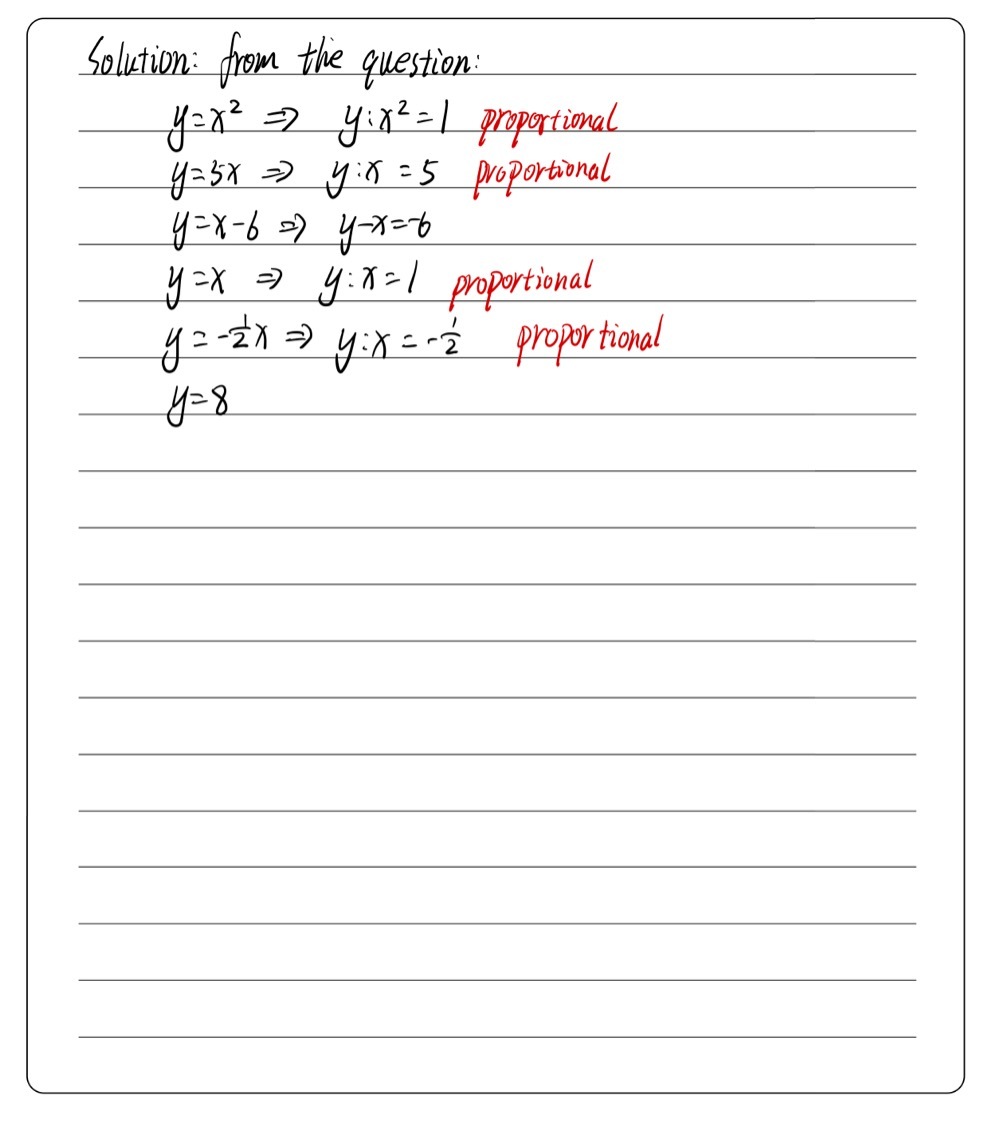 Solution: from the question:
y=x² ⇒ y:x²=1 proportional
y=5x ⇒ y:x=5 proportional
y=x-6 ⇒ y-x=-6
y=x ⇒ y:x=1 proportional
y=-1/2x ⇒ y:x=-1/2 proportional
y=8